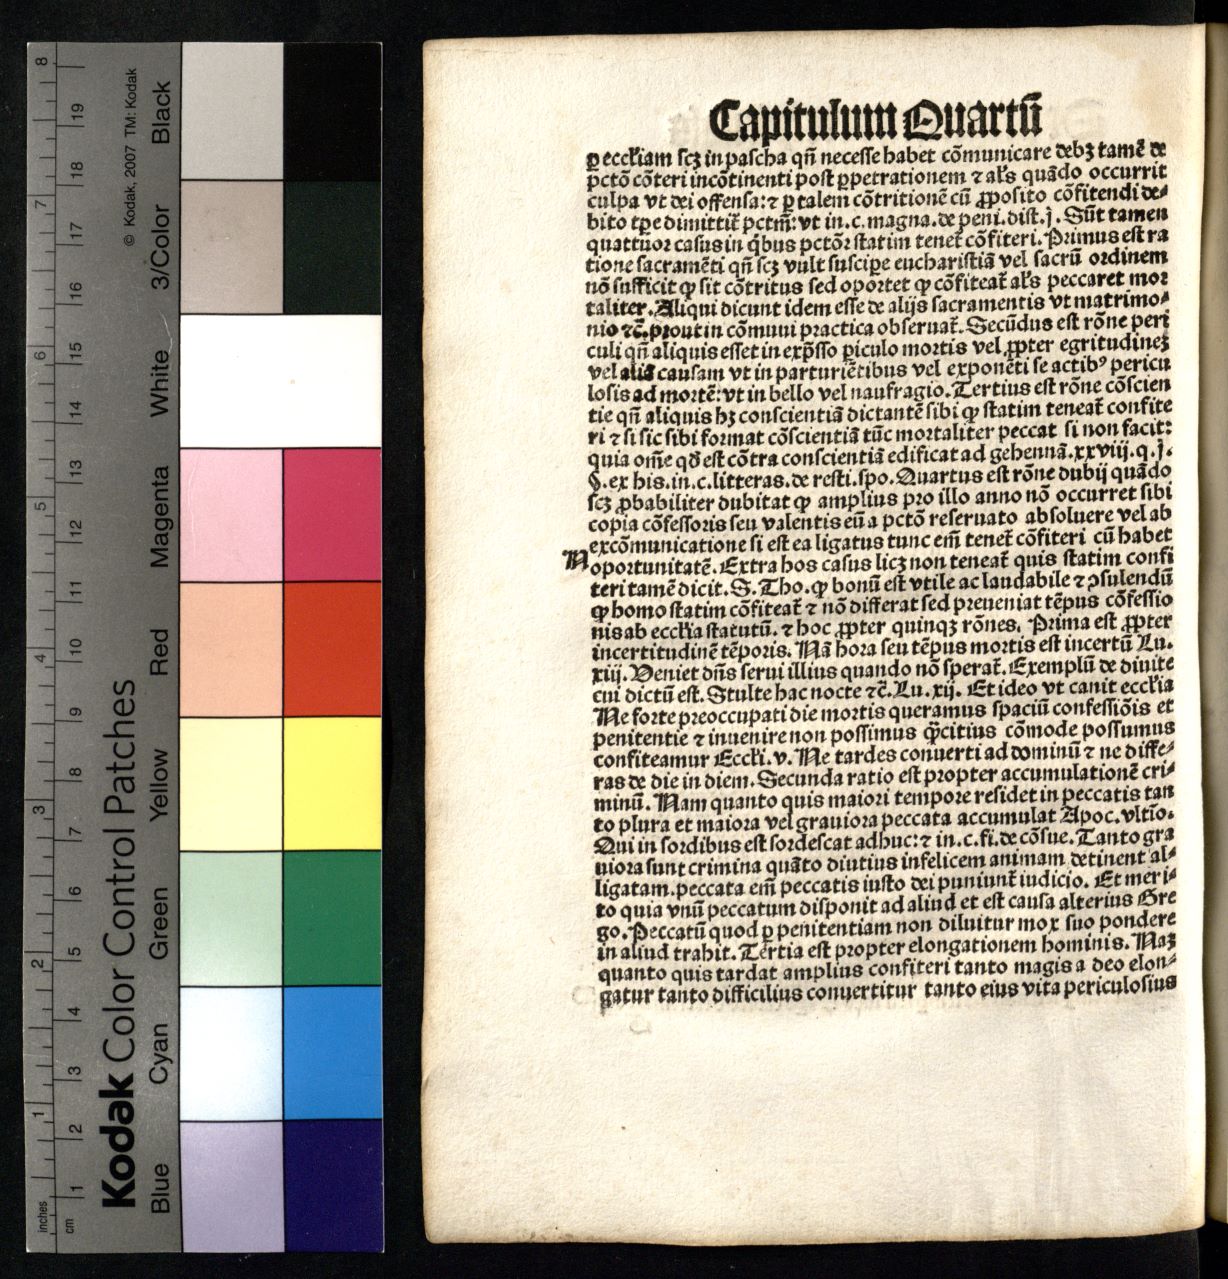 Capitulum Quartū
ꝑ eccłiam scꝫ in pascha qñ necesse habet cōmunicare debꝫ tamē de
pctō cōteri incōtinenti post ꝑpetrationem ⁊ als quādo occurrit
culpa vt dei offensa:⁊ ꝑ talem cōtritionē cū ꝓposito cōfitendi de⸗
bito tꝑe dimittit̄ pctm̄: vt in .c. magna. de peni. dist. j. Sūt tamen
quattuor casus in q̇bus pctōꝛ statim tenet̄ cōfiteri. Primus est ra
tione sacramēti qñ scꝫ vult suscipe eucharistiā vel sacrū ordinem
nō sufficit ꝙ sit cōtritus sed oportet ꝙ cōfiteat̄ als peccaret mor
taliter. Aliqui dicunt idem esse de alijs sacramentis vt matrimo⸗
nio ⁊c̄. prout in cōmuni practica obseruat̄. Secūdus est rōne peri
culi qñ aliquis esset in exp̄sso ꝑiculo mortis vel ꝓpter egritudineꝫ
vel aliā causam vt in parturiētibus vel exponēti se actibꝰ pericu
losis ad mortē: vt in bello vel naufragio. Tertius est rōne cōscien
tie qñ aliquis hꝫ conscientiā dictantē sibi ꝙ statim teneat̄ confite
ri ⁊ si sic sibi format cōscientiā tūc mortaliter peccat si non facit:
quia om̄e qđ est cōtra conscientiā edificat ad gehennā. xxviij. q. j.
§. ex his. in .c. litteras. de resti. spo. Quartus est rōne dubij quādo
scꝫ ꝓbabiliter dubitat ꝙ amplius pro illo anno nō occurret sibi
copia cōfessoris seu valentis eū a pctō reseruato absoluere vel ab
excōmunicatione si est ea ligatus tunc em̄ tenet̄ cōfiteri cū habet
N oportunitatē. Extra hos casus licꝫ non teneat̄ quis statim confi
teri tamē dicit. S. Tho. ꝙ bonū est vtile ac laudabile ⁊ ↄsulendū
ꝙ homo statim cōfiteat̄ ⁊ nō differat sed preueniat tēpus cōfessio
nis ab eccłia statutū. ⁊ hoc ꝓpter quinqꝫ rōnes. Prima est ꝓpter
incertitudinē tēporis. Nā hora seu tēpus mortis est incertū Lu.
xiij. Veniet dn̄s serui illius quando nō sperat̄. Exemplū de diuite
cui dictū est. Stulte hac nocte ⁊c̄. Lu. xij. Et ideo vt canit eccłia
Ne forte preoccupati die mortis queramus spaciū confessiōis et
penitentie ⁊ inuenire non possimus q̄ꝫcitius cōmode possumus
confiteamur Eccłi. v. Ne tardes conuerti ad dominū ⁊ ne diffe⸗
ras de die in diem. Secunda ratio est propter accumulationē cri⸗
minū. Nam quanto quis maiori tempore residet in peccatis tan
to plura et maiora vel grauiora peccata accumulat Apoc. vltīo.
Qui in sordibus est sordescat adhuc:⁊ in .c. fi. de cōsue. Tanto gra
uiora sunt crimina quāto diutius infelicem animam detinent al⸗
ligatam. peccata em̄ peccatis iusto dei puniunt̄ iudicio. Et meri⸗
to quia vnū peccatum disponit ad aliud et est causa alterius Gre
go. Peccatū quod ꝑ penitentiam non diluitur mox suo pondere
in aliud trahit. Tertia est propter elongationem hominis. Naꝫ
quanto quis tardat amplius confiteri tanto magis a deo elon⸗
gatur tanto difficilius conuertitur tanto eius vita periculosius
Kodak Color Control Patches
© Kodak, 2007 TM: Kodak
Blue Cyan Green Yellow Red Magenta White 3/Color Black
inches 1 2 3 4 5 6 7 8
cm 1 2 3 4 5 6 7 8 9 10 11 12 13 14 15 16 17 18 19